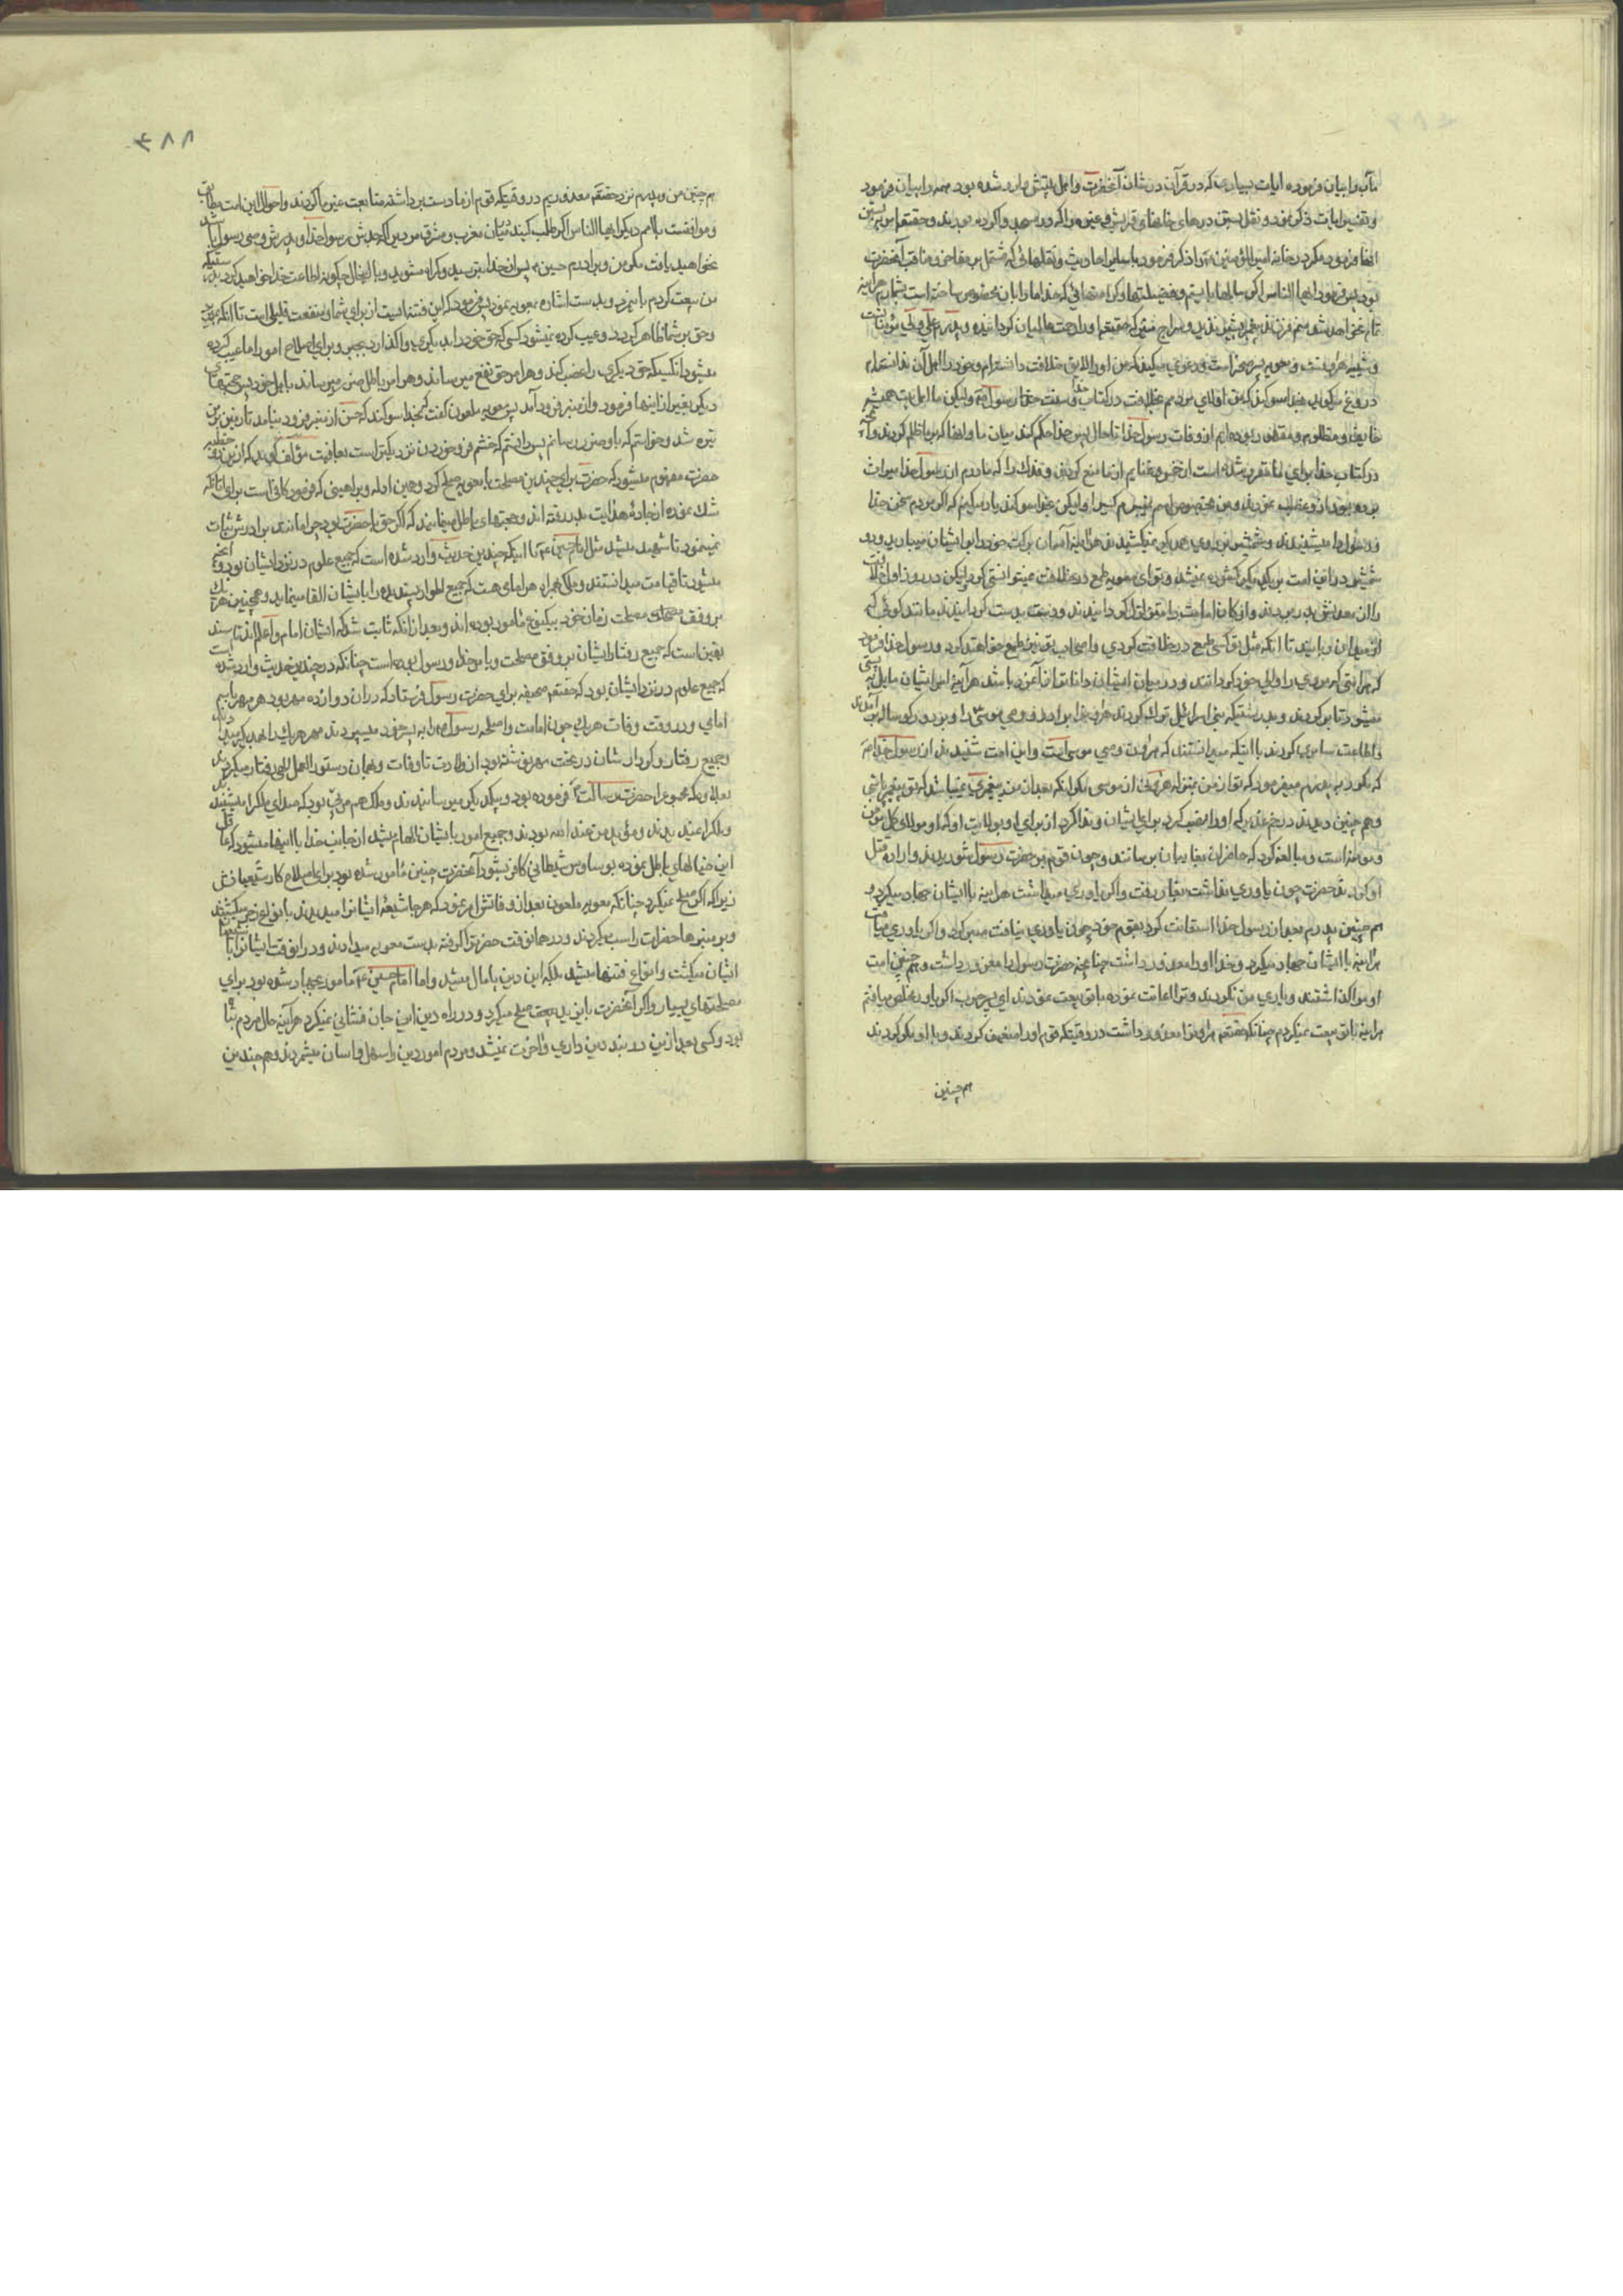 مآب را بیان فرموده ایات بسیاری که در قرآن در شان آنحضرت و اهل بیتش وارد شده بود همه را بیان فرمود
و تفسیر ایات ذکر نمود و نقل بستن درهای خانهای قریش و غیره را که در مسجد واکرده بودند و حقتعم امر ببستن
انها فرموده مکر در خانه امیرالمؤمنین
بود پس فرمود ایها الناس اکر سالها بایستم و فضیلتها و کرامتهائی که خدا ما را بان مخصوص ساخته است بشمارم هراینه
تمام نخواهد شد منم فرزند پیغمبر بشیر نذیر و سراج منیر که حقتعم او را رحمت عالمیان کردانیده و پدرم علی ولی مؤمنانست
و شبیه هارونست و معویه پسر صخر است و دعوی میکند که من او را لایق خلافت دانسته‌ام و خود را اهل آن ندانسته‌ام
دروغ میکوید بخدا سوکند که من اولای مردمم بخلافت در کتاب خدا و سنت حضرت رسول و لیکن ما اهل بیت همیشه
خایف و مظلوم و مقهور بوده‌ایم از وفات رسول خدا تا حال پس خدا حکم کند میان ما و انها که بر ما ظلم کردند و آنچه
در کتاب خدا برای ما مقرر شده است از خمس و غنایم از ما منع کردند و فدک را که مادرم از رسول خدا میراث
برده بود از او غصب نمودند و من مخصوص اسم نمیبرم کسی را و لیکن بخدا سوکند یاد میکنم که اکر مردم سخن خدا
و رسول را میشنیدند و شمشیر بر روی همدیکر نمیکشیدند هراینه آسمان برکت خود را بر ایشان میبارید و دو
شمشیر در این امت بر یکدیکر کشیده نمیشد و تو ای معویه طمع در خلافت نمیتوانستی کرد و لیکن در روز اول خلافت
را از معدنش بدر بردند و ارکان امامت را متزلزل کردانیدند و دست بدست کردانیدند مانند کوئی که
از میدان ربایند تا انکه مثل تو کسی طمع در خلافت کردی و اصحاب تو نیز طمع خواهند کرد و رسول خدا فرمود
که هر امتی که مردی را والی خود کردانند و در میان ایشان داناتر از آنمرد باشد هراینه امر ایشان مایل به پستی
میشود تا برکردند و بدرستیکه بنی اسرائیل ترک کردند هارون را برادر و وصی موسی را و بر دور کوساله برآمدند
و اطاعت سامری کردند با اینکه میدانستند که هارون وصی موسی است و این امت شنیدند از رسول خدا ص
که مکرر به پدرم میفرمود که تو از من بمنزله هرونی از موسی مکر انکه بعد از من پیغمبری نمیباشد که تو پیغمبر باشی
و هم چنین دیدند در خم غدیر که او را نصب کرد برای ایشان و ندا کرد از برای او بولایت او که او مولای کل مؤمن
و مؤمنه است و مبالغه کرد که حاضران بغایبان برسانند و چون قوم بر حضرت رسول شوریدند و اراده قتل
او کردند حضرت چون یاوری نداشت بغار رفت و اکر یاوری میداشت هراینه با ایشان جهاد میکرد و
هم چنین پدرم بعد از رسول خدا استغاثت کرد بقوم خود چون یاوری نیافت صبر کرد و اکر یاوری مییافت
هراینه با ایشان جهاد میکرد و خدا او را معذور داشت چنانچه حضرت رسول را معذور داشت و هم چنین امت
او مرا کذاشتند و یاری من نکردند و ترا اعانت نموده با تو بیعت نمودند ای پسر حرب اکر یاور مخلص مییافتم
هراینه با تو بیعت نمیکردم چنانکه حقتعم هارونرا معذور داشت در وقتیکه قوم او را ضعیف کردند و با او مکر کردند
هم چنین
۴۸۸
هم چنین من و پدرم نزد حقتعم معذوریم در وقتیکه قوم از ما دست برداشته متابعت غیر ما کردند و احوال این امت مطابق
و موافقست با امم دیکر ایها الناس اکر طلب کنید میان مغرب و مشرق مردیرا که جدش رسول خدا و پدرش وصی رسول باشد
نخواهید یافت مکر من و برادرم حسین پس از خدا بترسید و کمراه مشوید
من بیعت کردم با اینمرد و بدست اشاره بمعویه نمود پس فرمود که این فتنه ایست از برای شما و منفعت قلیلی است تا انکه
و حق بر شما ظاهر کردد و عیب کرده نمیشود کسی که حق خود را بدیکری واکذارد و برای اصلاح امور اما عیب کرده
میشود انکسیکه حق دیکری را غصب کند و هر امر حق نفع میرساند و هر امر باطل ضرر میرساند باهل خود پس
دیکر بغیر از اینها فرمود و از منبر فرود آمد پس معویه ملعون کفت که بخدا سوکند که حسن از منبر فرود نیامد تا زمین بر من
تیره شد و خواستم که باو ضرر رسانم پس دانستم که خشم فرو خوردن نزدیکتر است بعافیت مؤلف کوید که از این خطبه
حضرت مفهوم میشود که حضرت برای چندین مصلحت با معویه صلح کرد و همین ادله و براهینی که فرمود کافیست برای تا انکه
شک نموده از جادهٔ هدایت بدر رفته اند و حجتهای باطل مینمایند که اکر حق با حضرت بود چرا مانند برادرش ثبات
نمینمود تا شهید میشد مثل امام حسین ع اما اینکه چندین حدیث وارد شده است که جمیع علوم در نزد ایشان بود و آنچه
میشود تا قیامت میدانستند و ملکی همراه هر امامی هست که جمیع اطوار پسندیده را بایشان القا مینماید و همچنین هر یک
بر وفق مصلحت زمان خود بیکنوع مأمور بوده اند و بعد از انکه ثابت شد که ایشان امام و
یقین است که جمیع رفتار ایشان بر وفق مصلحت و بامر خدا و رسول بوده است چنانکه در چندین حدیث وارد شده است
که جمیع علوم در نزد ایشان بود که حقتعم صحیفه برای حضرت رسول فرستاد که در ان دوازده مهر بود هر مهر باسم
امامی و در وقت وفات هر یک چون امامت و اسلحه رسول را به پسر خود میسپردند مهر هر یک را
و جمیع رفتار و کردارشان در تحت مهر نوشته بود از ولادت تا وفات و بهمان دستورالعمل الهی رفتار میکردند
بعلاوه که مجموع را حضرت رسالت فرموده بود و بیکدیکر میرسانیدند و ملک هم مربی بود که صدای ملکرا میشنیدند
و ملکرا نمیدیدند و مؤید من عند الله بودند و جمیع امور بایشان الهام میشد از جانب خدا با اینها میشود که عاقل
این خیالهای باطل نموده بوساوس شیطانی کافر بشود آنحضرت چنین مأمور شده بود برای اصلاح کار شیعیانش
زیرا که اکر صلح نمیکرد چنانکه معویه ملعون بعد از وفاتش امر نمود که هر جا شیعهٔ ایشانرا میدیدند بانواع زجر میکشتند
و بر منبرها حضرات را سب میکردند و در همانوقت حضرترا کرفته بدست معویه میدادند و در انوقت ایشانرا با شیعیان
ایشان میکشت و انواع فتنها میشد بلکه این دین پامال میشد و اما امام حسین ع مامور بجهاد شده بود برای
مصلحتهای بسیار و اکر آنحضرت با یزید پلید صلح میکرد و در راه دین این جان فشانی نمیکرد هراینه حال مردم تباه
بود و کسی بعد از این در بند دین داری و اخرت نمیشد و مردم امور دین را سهل و اسان میشمردند و هم چندین